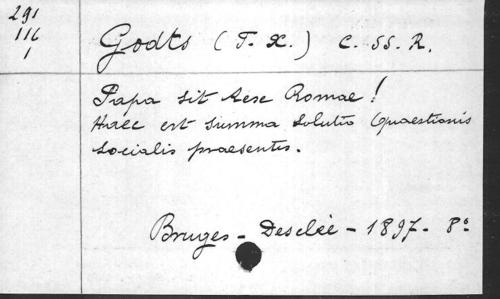 291
116
1
Godts (F. X.) C. SS. R.
Papa sit Rex Romae!
Haec est summa solutio Quaestionis
socialis praesentis.
Bruges - Desclée - 1897 - 8°